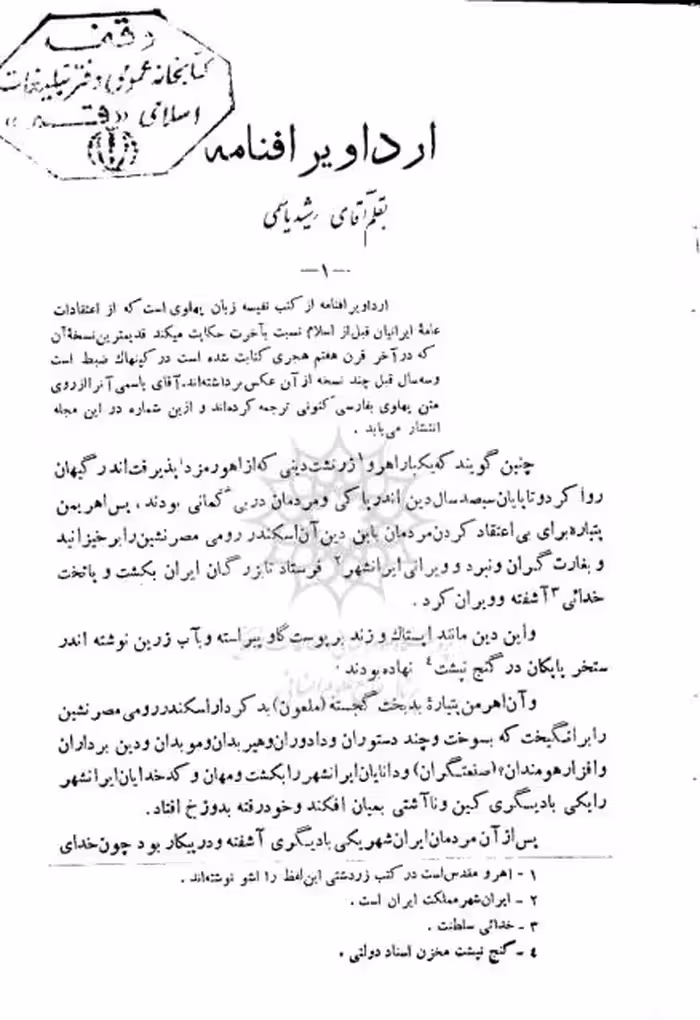 وقف
کتابخانه عمومی دفتر تبلیغات
اسلامی «قم»
ارداویرافنامه
بقلم آقای رشید یاسمی
—۱—
ارداویرافنامه از کتب نفیسه زبان پهلوی است که از اعتقادات
عامهٔ ایرانیان قبل از اسلام نسبت بآخرت حکایت میکند قدیمترین نسخهٔ آن
که در آخر قرن هفتم هجری کتابت شده است در کپنهاك ضبط است
وسه سال قبل چند نسخه از آن عکس برداشته‌اند. آقای یاسمی آنرا ازروی
متن پهلوی بفارسی کنونی ترجمه کرده‌اند و ازین شماره در این مجله
انتشار می‌یابد .
چنین گویند که یکبار اهرو۱ زرتشت دینی که از اهورمزد پذیرفت اندر گیهان
روا کرد و تا پایان سیصد سال دین اندر پاکی و مردمان در بی گمانی بودند ، پس اهریمن
پتیاره برای بی اعتقاد کردن مردمان باین دین آن اسکندر رومی مصر نشین را بر خیزانید
و بغارت گران و نبرد و ویرانی ایرانشهر۲ فرستاد تا بزرگان ایران بکشت و پاتخت
خدائی۳ آشفته و ویران کرد .
و این دین مانند ایستاك و زند بر پوست گاو پیراسته و بآب زرین نوشته اندر
ستخر پاپکان در گنج نپشت۴ نهاده بودند .
و آن اهرمن پتیارهٔ بدبخت گجسته (ملعون) بد کردار اسکندر رومی مصر نشین
را برانگیخت که بسوخت و چند دستوران و دادوران و هیربدان و موبدان و دین برداران
و افزارهومندان؟ (صنعتگران) و دانایان ایرانشهر را بکشت و مهان و کدخدایان ایرانشهر
را یکی بادیگری کین و نا آشتی بمیان افکند و خود رفته بدوزخ افتاد.
پس از آن مردمان ایران شهر یکی بادیگری آشفته و در پیکار بود چون خدای
۱ - اهرو مقدس است در کتب زردشتی این لفظ را اشو نوشته‌اند .
۲ - ایران شهر مملکت ایران است .
۳ - خدائی سلطنت .
٤ - گنج نپشت مخزن اسناد دولتی .